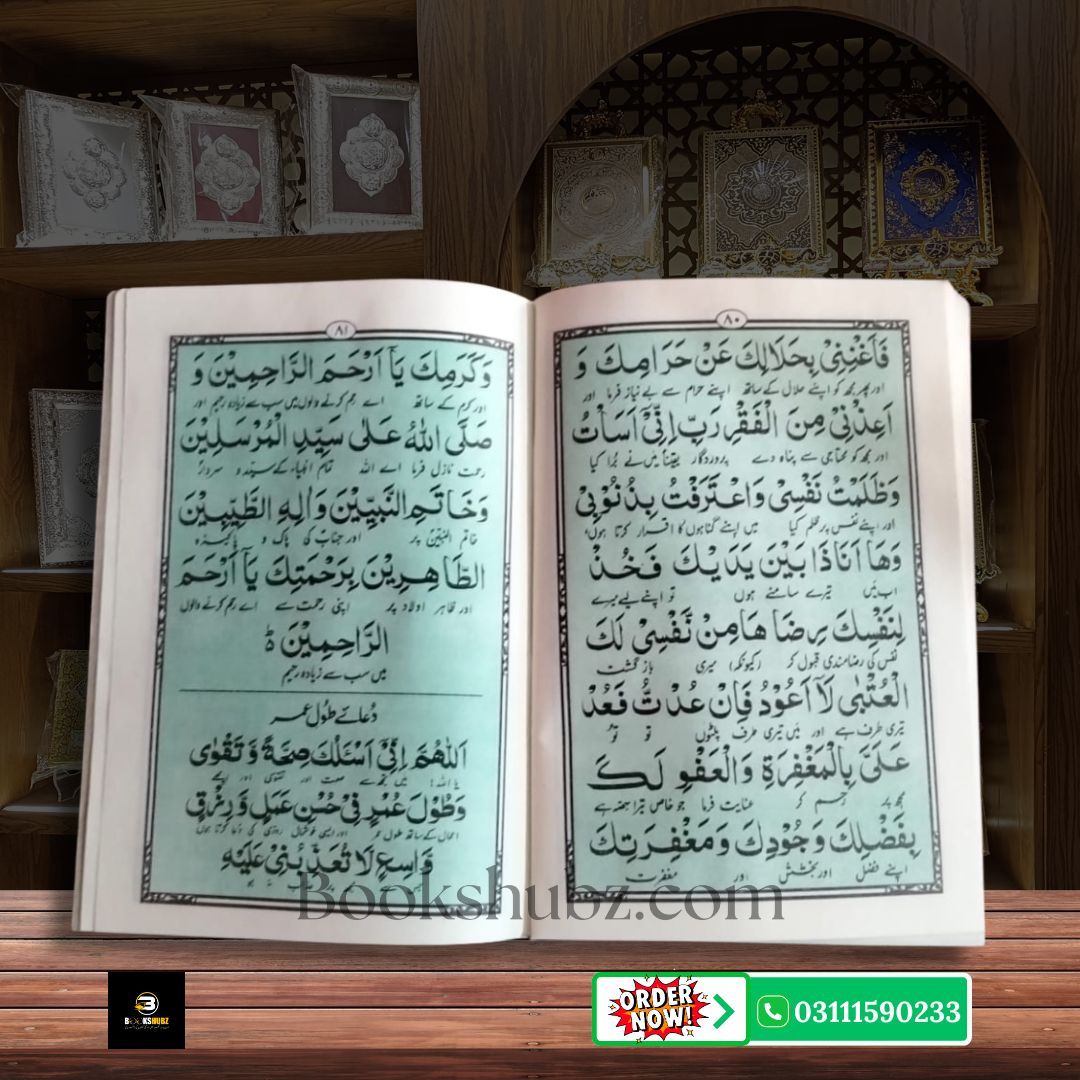 ٨٠
فَاَغْنِنِیْ بِحَلَالِكَ عَنْ حَرَامِكَ وَ
اور پھر مجھ کو اپنے حلال کے ساتھ اپنے حرام سے بے نیاز فرما اور
اَعِذْنِیْ مِنَ الْفَقْرِ رَبِّ اِنِّیْ اَسَاْتُ
اور مجھ کو محتاجی سے پناہ دے پروردگار یقیناً میں نے بُرا کیا
وَظَلَمْتُ نَفْسِیْ وَاعْتَرَفْتُ بِذُنُوْبِیْ
اور اپنے نفس پر ظلم کیا میں اپنے گناہوں کا اقرار کرتا ہوں
وَهَا اَنَا ذَا بَيْنَ يَدَيْكَ فَخُذْ
اب میں تیرے سامنے ہوں تو اپنے لیے میرے
لِنَفْسِكَ رِضَا هَا مِنْ نَّفْسِیْ لَكَ
نفس کی رضامندی قبول کر (کیونکہ) میری بازگشت
الْعُتْبٰی لَاۤ اَعُوْدُ فَاِنْ عُدْتُّ فَعُدْ
تیری طرف ہے اور میں تیری طرف پلٹوں تو تو
عَلَیَّ بِالْمَغْفِرَةِ وَالْعَفْوِ لَكَ
مجھ پر رحم کر عنایت فرما جو خاص تیرا حصہ ہے
بِفَضْلِكَ وَجُوْدِكَ وَمَغْفِرَتِكَ
اپنے فضل اور بخشش اور مغفرت
٨١
وَكَرَمِكَ يَاۤ اَرْحَمَ الرَّاحِمِيْنَ وَ
اور کرم کے ساتھ اے رحم کرنے والوں میں سب سے زیادہ رحیم اور
صَلَّی اللّٰهُ عَلٰی سَيِّدِ الْمُرْسَلِيْنَ
رحمت نازل فرما اے اللہ تمام انبیاء کے سید و سردار
وَخَاتَمِ النَّبِيِّيْنَ وَاٰلِهِ الطَّيِّبِيْنَ
خاتم النبیین پر اور جناب کی پاک و پاکیزہ
الطَّاهِرِيْنَ بِرَحْمَتِكَ يَاۤ اَرْحَمَ
اور طاہر اولاد پر اپنی رحمت سے اے رحم کرنے والوں
الرَّاحِمِيْنَ ط
میں سب سے زیادہ رحیم
دُعائے طول عمر
اَللّٰهُمَّ اِنِّیْۤ اَسْئَلُكَ صِحَّةً وَّ تَقْوٰی
یا اللہ! میں تجھ سے صحت اور تقوی اور اپنے
وَطُوْلَ عُمْرٍ فِیْ حُسْنِ عَمَلٍ وَّ رِزْقٍ
اعمال کے ساتھ طول عمر اور ایسی روزی کی دعا کرتا ہوں
وَّاسِعٍ لَا تُعَذِّبُنِیْ عَلَيْهِ
Bookshubz.com
BOOKSHUBZ
ORDER NOW!
03111590233